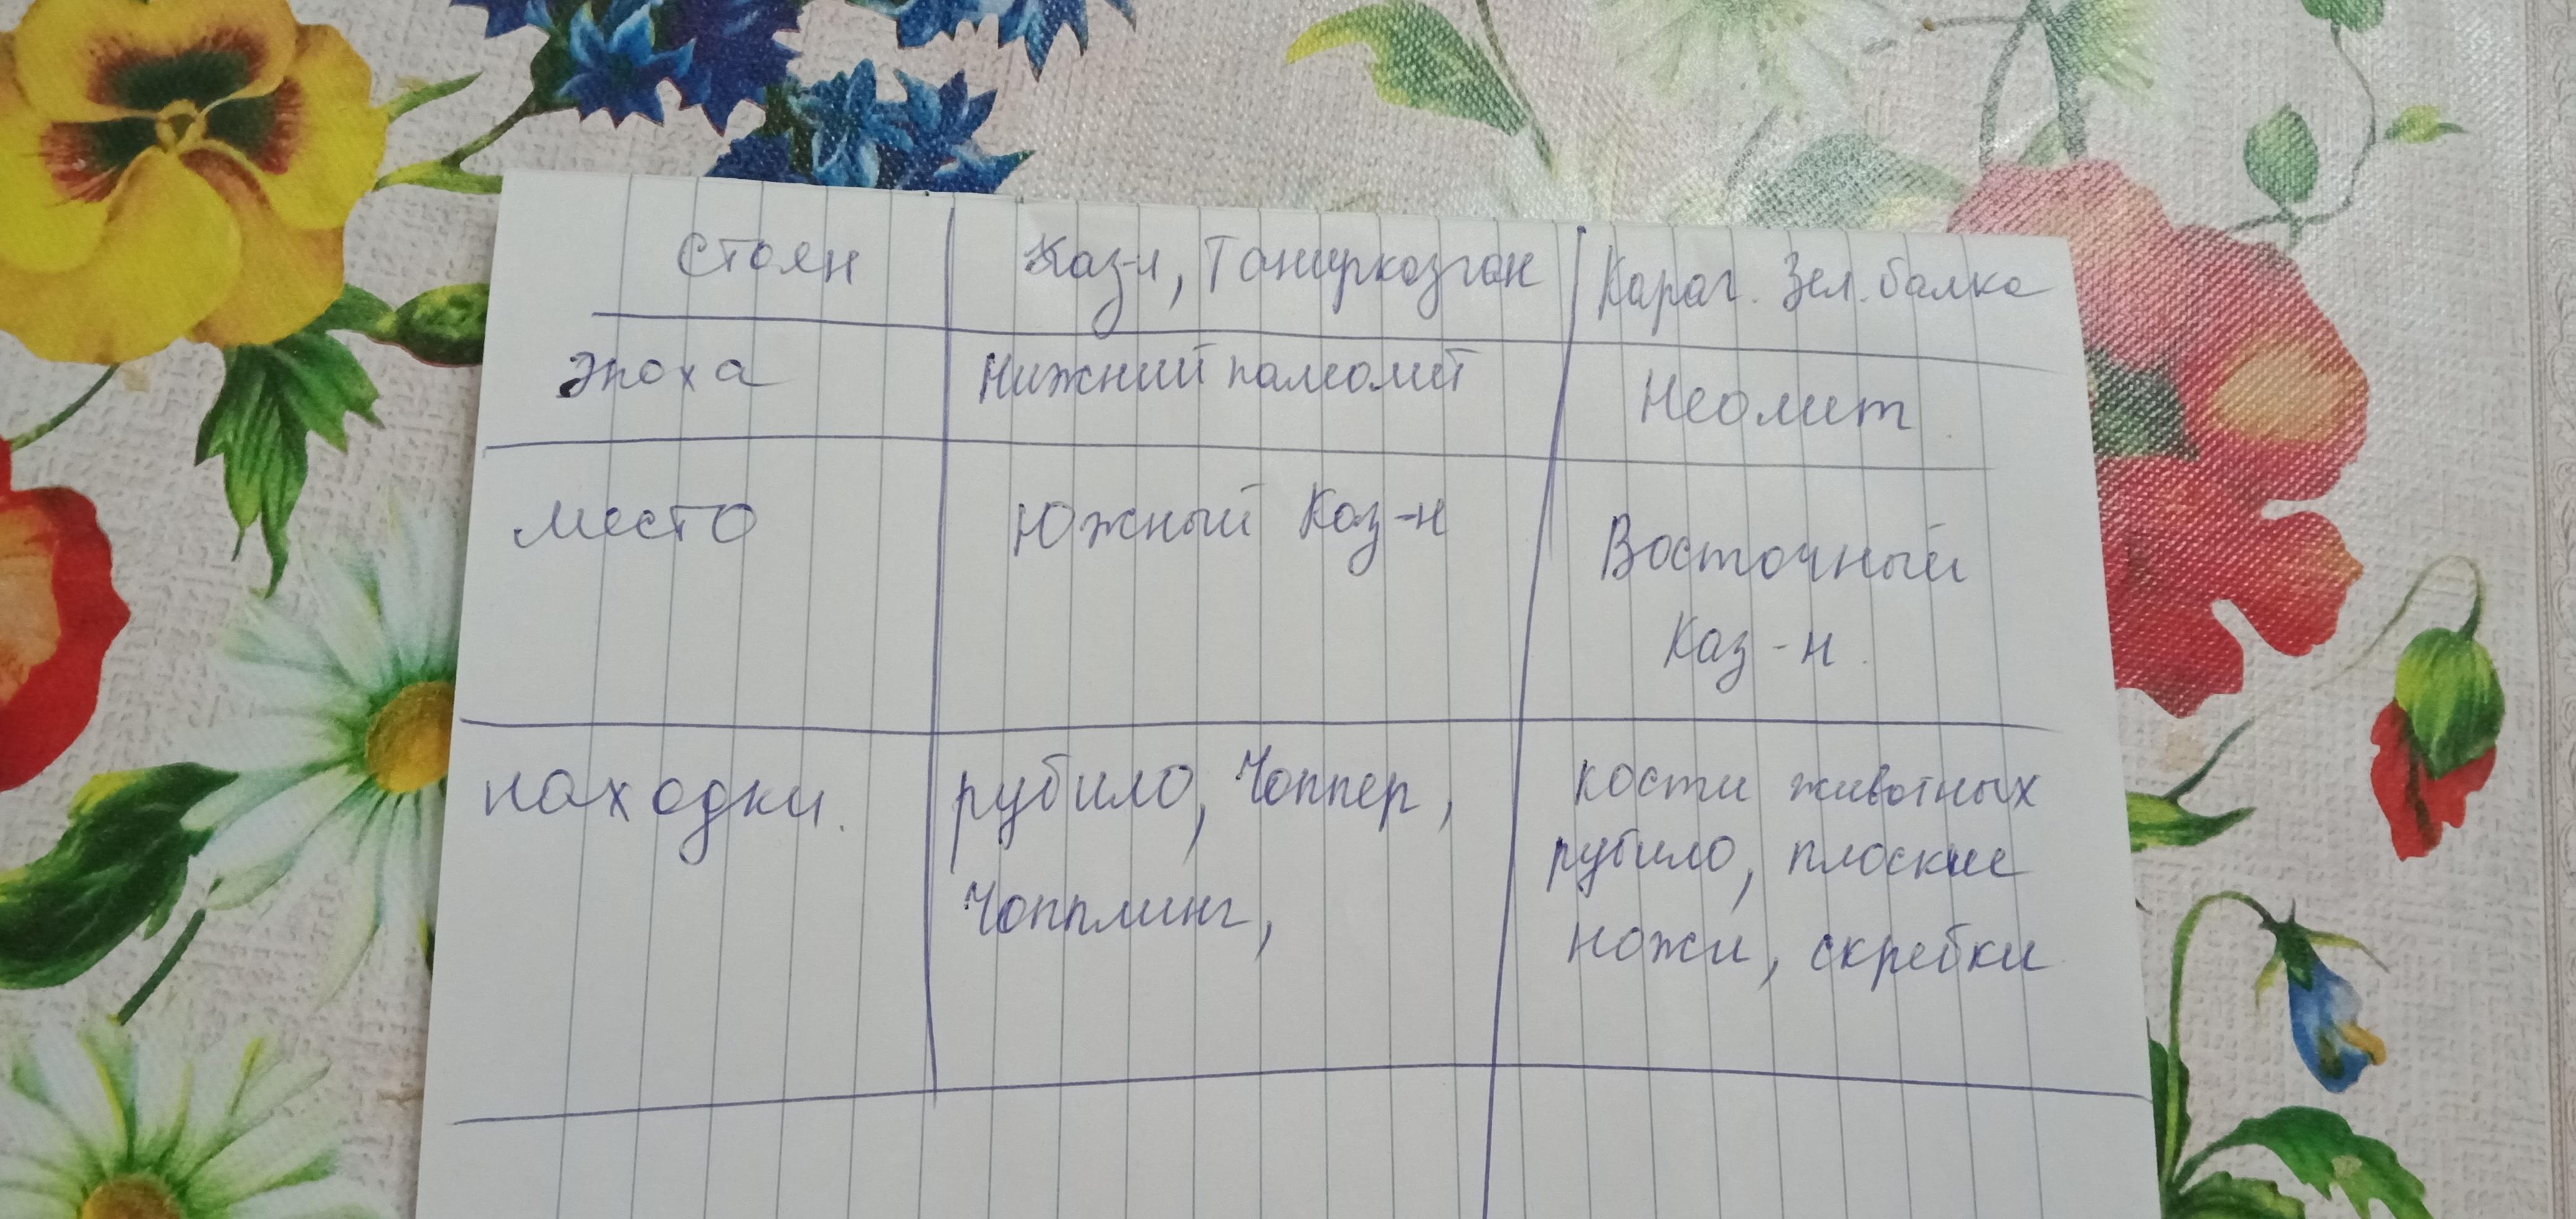 Стоян Каз-н, Танирказган Караг. Зел. балка
Эпоха Нижний палеолит Неолит
место Южный Каз-н Восточный
Каз-н.
находки. рубило, Чоппер, кости животных
Чопплинг, рубило, плоские
ножи, скребки